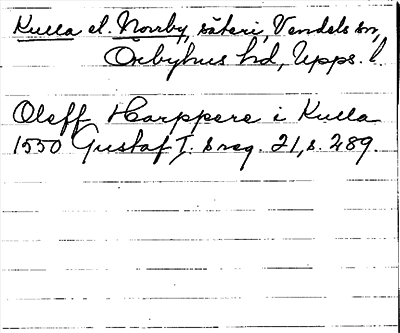 Kulla el. Norrby, säteri, Vendels sn,
Örbyhus hd, Upps. l.
Oleff Harppere i Kulla
1550 Gustaf I:s reg. 21, s. 289.